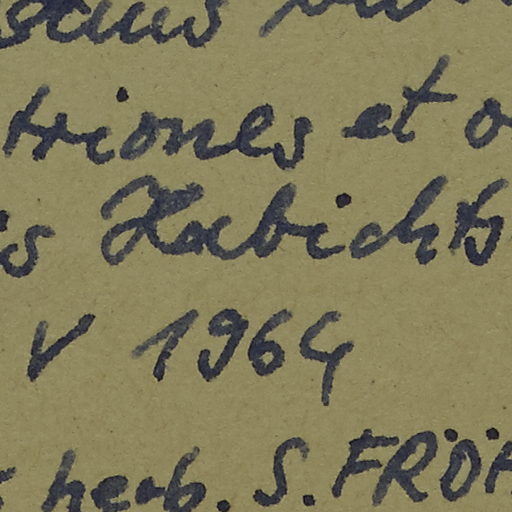 triones et
Habichts
V 1964
herb. S. FRÖ